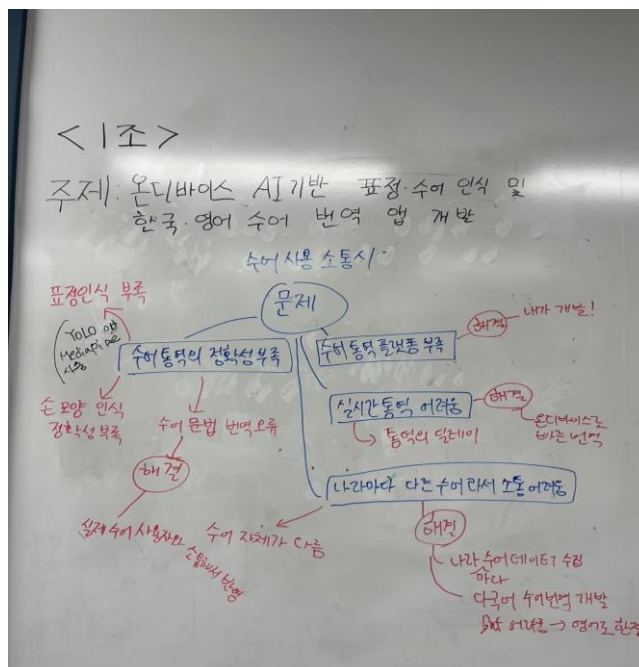 <1조>
주제: 온디바이스 AI기반 표정·수어 인식 및
한국·영어 수어 번역 앱 개발
수어 사용 소통시
문제
표정인식 부족
(YOLO or
Mediapipe
사용
수어 통역의 정확성 부족
손 모양 인식
정확성 부족
수어 문법 번역 오류
해결
실제 수어 사용자와
소통해서 반영
수어 통역 플랫폼 부족
해결
내가 개발!
실시간 통역 어려움
해결
온디바이스로
빠른 번역
통역의 딜레이
나라마다 다른 수어라서 소통 어려움
수어 자체가 다름
해결
나라 수어데이터 수집
마다
다국어 수어번역 개발
But 어려움 → 영어로 한정